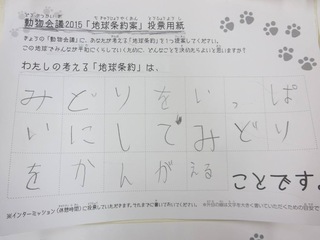 動物会議2015「地球条約」投票用紙
きょうの「動物会議」に、あなたが考える「地球条約」を1つ提案してください。
この地球でみんなが平和にくらしていくために、どんなことを決めたらよいと思いますか?
わたしの考える「地球条約」は、
みどりをいっぱ
いにしてみどり
をかんがえる
ことです。
※インターミッション(休憩時間)に投票していただきます。